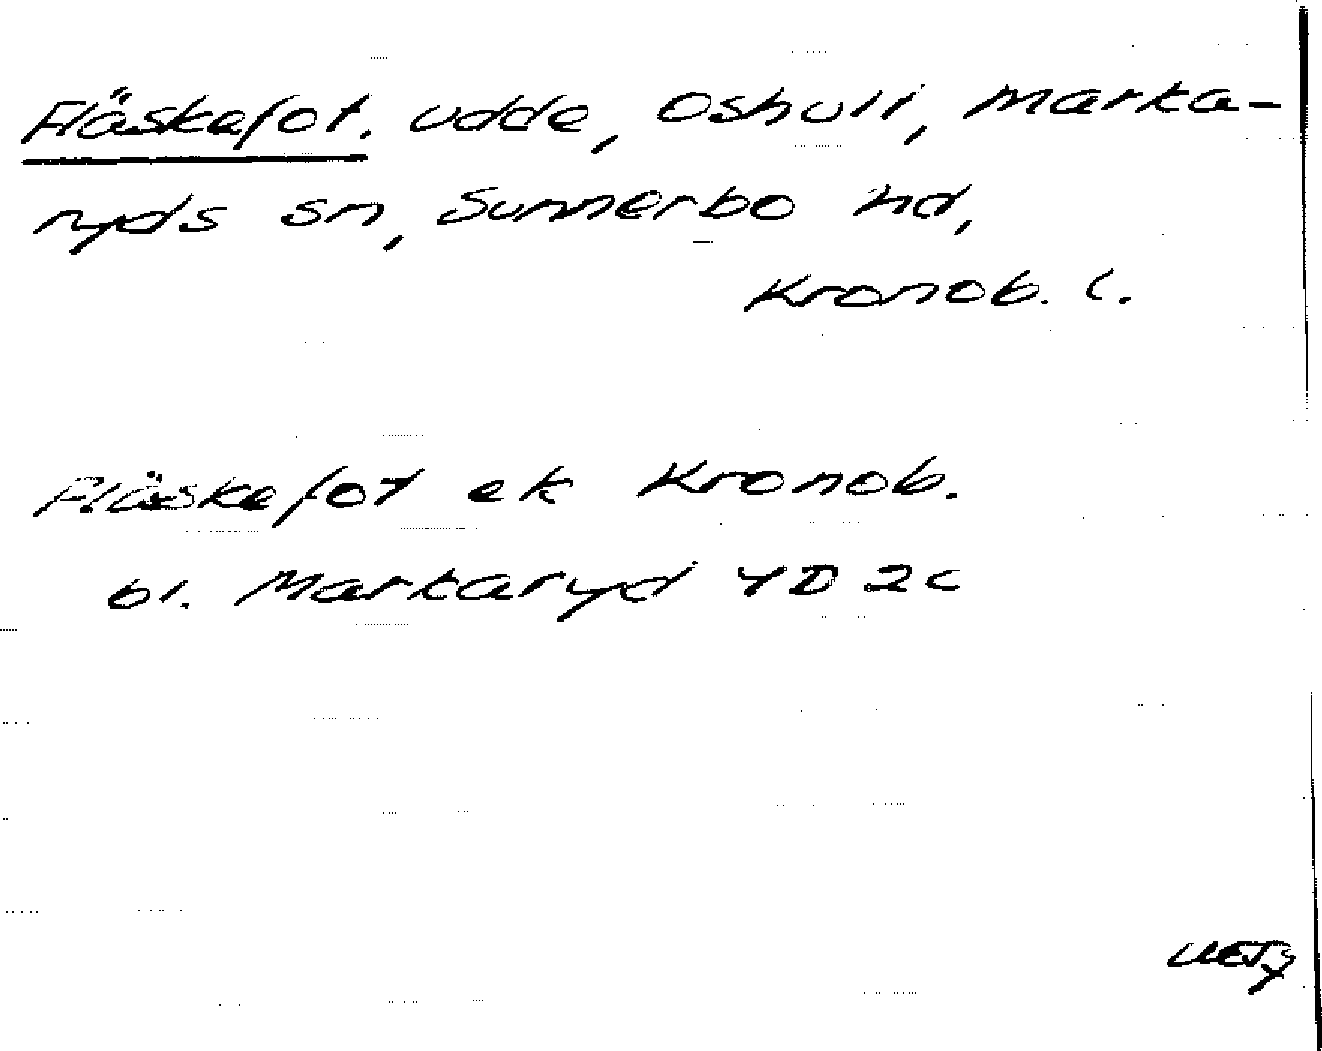 Fläskefot, udde, Oshult, Marka-
ryds sn, Sunnerbo hd,
Kronob. l.
Fläskefot ek Kronob.
bl. Markaryd 4D 2c